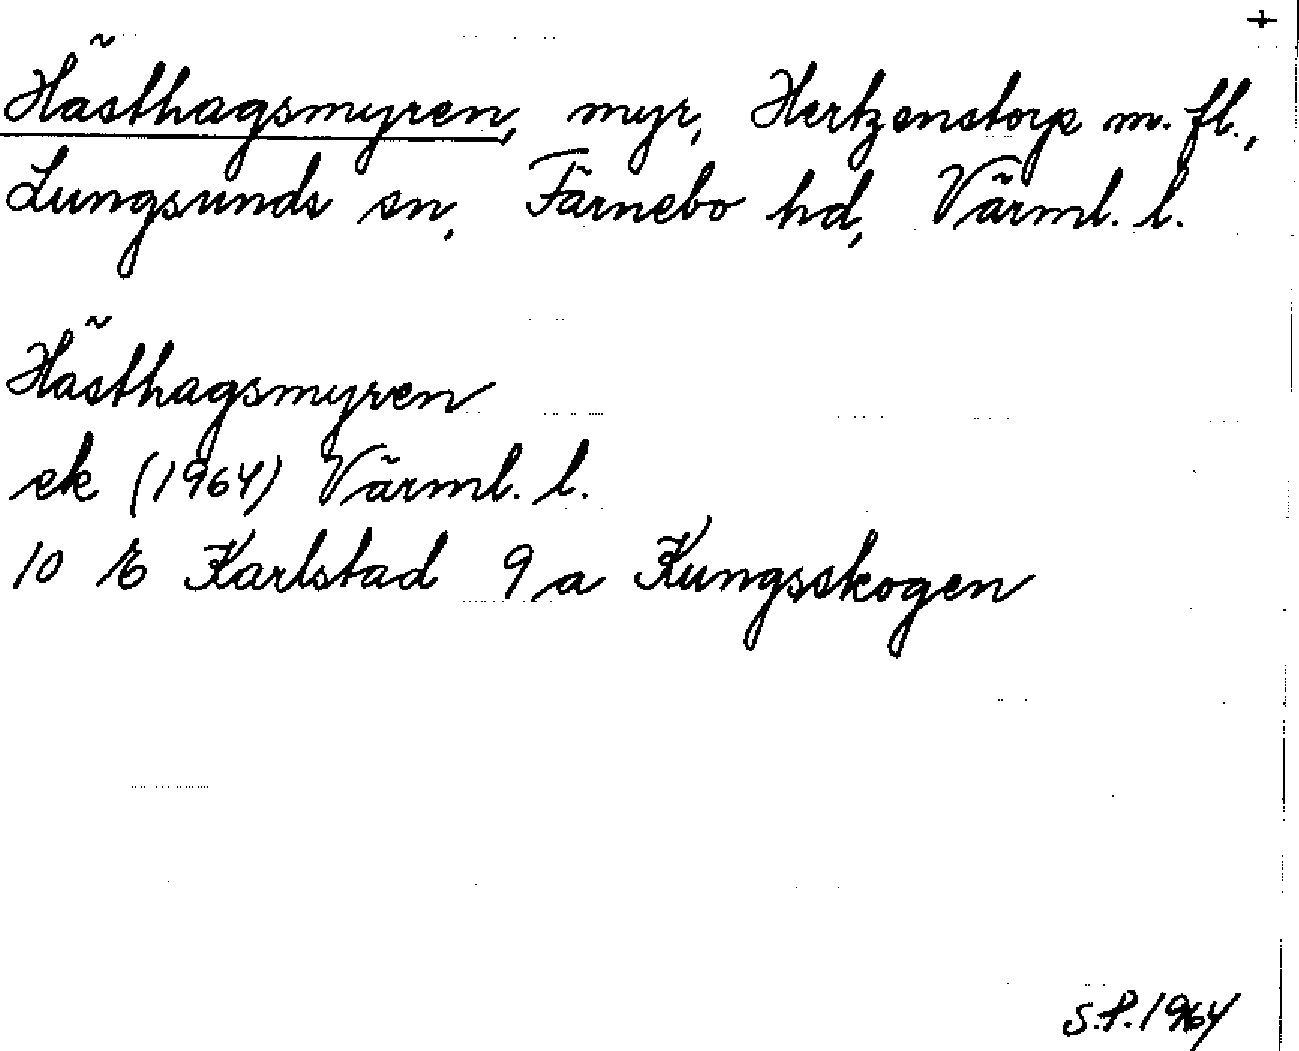 +
Hästhagsmyren, myr, Hertzenstorp m. fl.,
Lungsunds sn, Färnebo hd, Värml. l.
Hästhagsmyren
ek (1964) Värml. l.
10 E Karlstad 9 a Kungsskogen
S.P. 1964